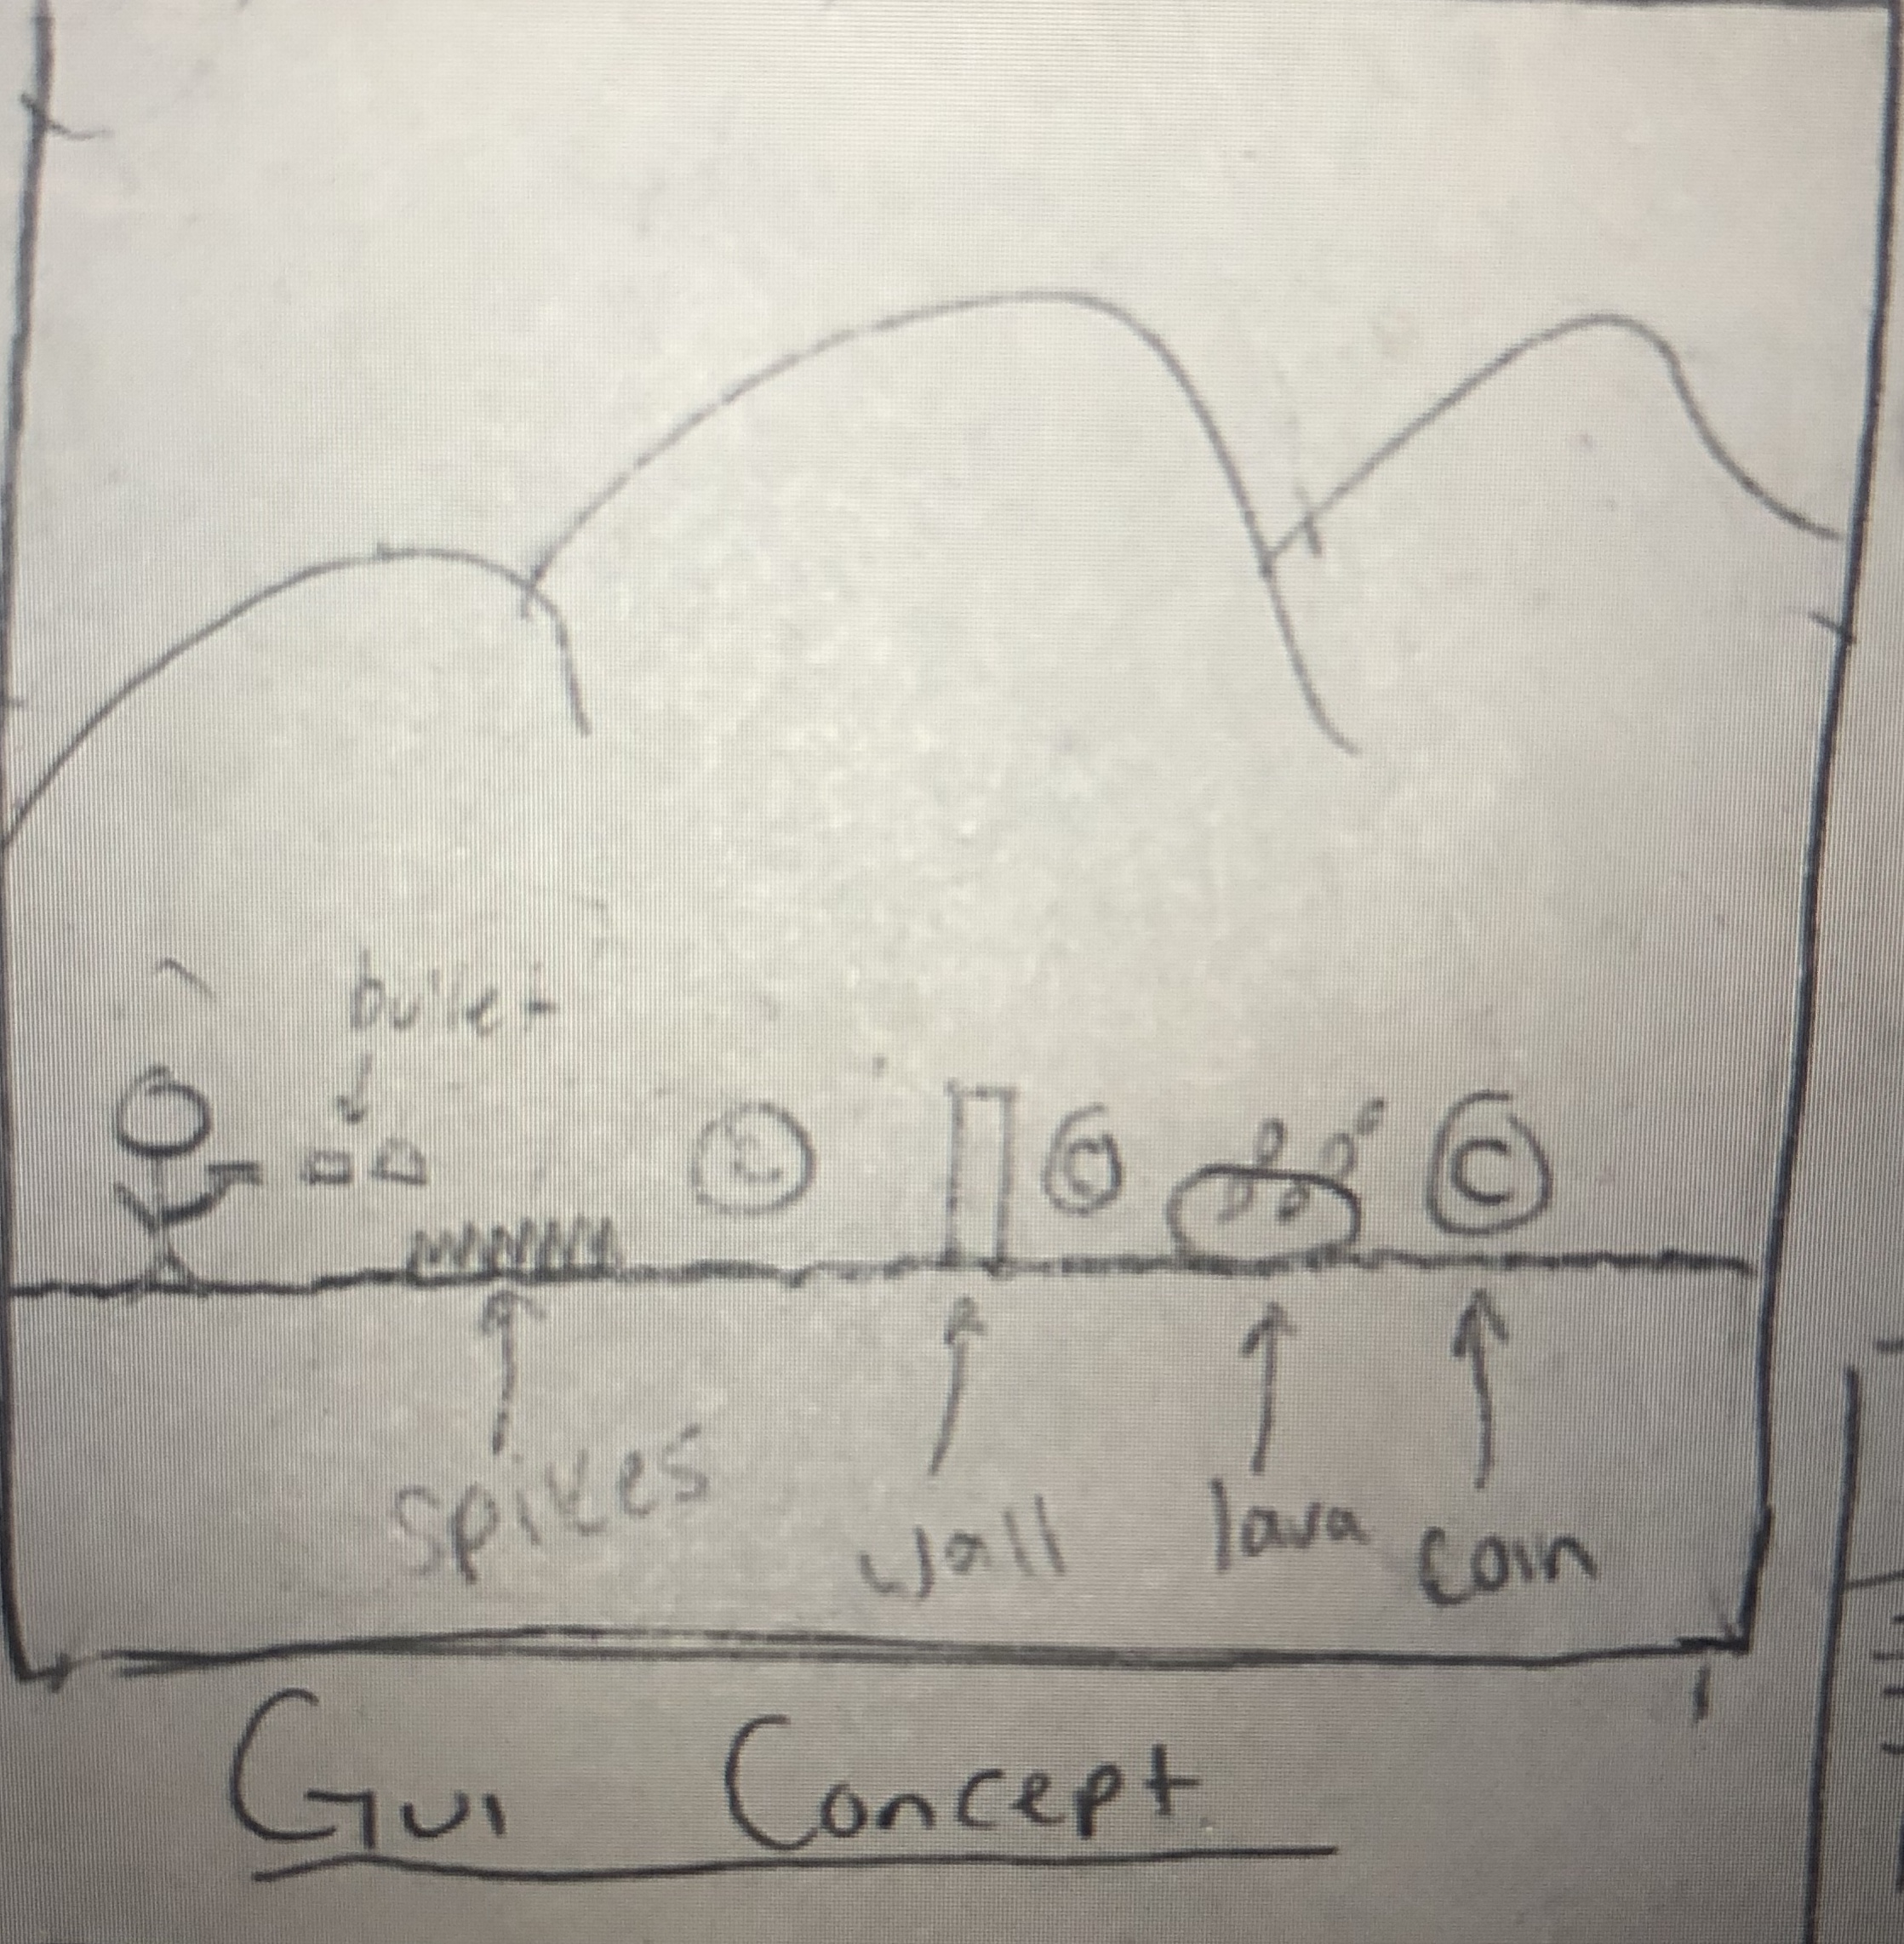 bullet
C C C
spikes
wall
lava
coin
GUI Concept